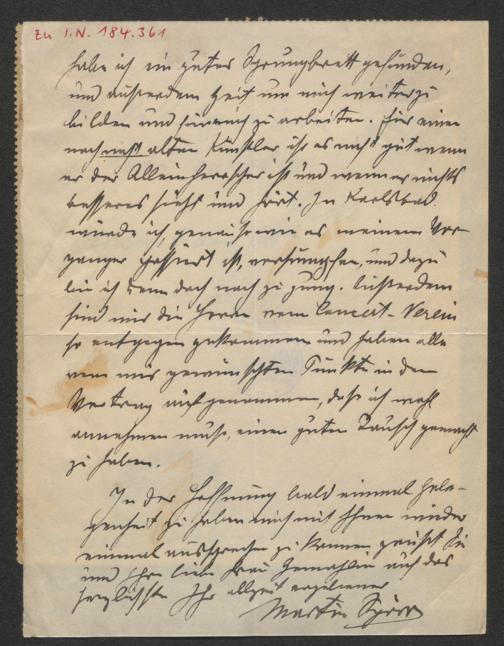 zu I.N. 184.361
habe ich ein gutes Sprungbrett gefunden,
und außerdem Zeit um mich weiterzu
bilden und für mich zu arbeiten. Für einen
noch nicht alten Künstler ist es nicht gut wenn
er der Alleinherrscher ist und wenn er nichts
besseres sieht und hört. In Karlsbad
würde ich, genau so wie es meinem Vor-
gänger passiert ist, versumpfen, und dazu
bin ich denn doch noch zu jung. Außerdem
sind mir die Herren vom Concert-Verein
so entgegen gekommen und haben alle
von mir gewünschten Punkte in den
Vertrag aufgenommen, daß ich wohl
annehmen muß, einen guten Tausch gemacht
zu haben.
In der Hoffnung bald einmal Gele-
genheit zu haben mich mit Ihnen wieder
einmal aussprechen zu können grüßt Sie
und Ihre liebe Frau Gemahlin auf das
herzlichste Ihr allzeit ergebener
Martin Spörr